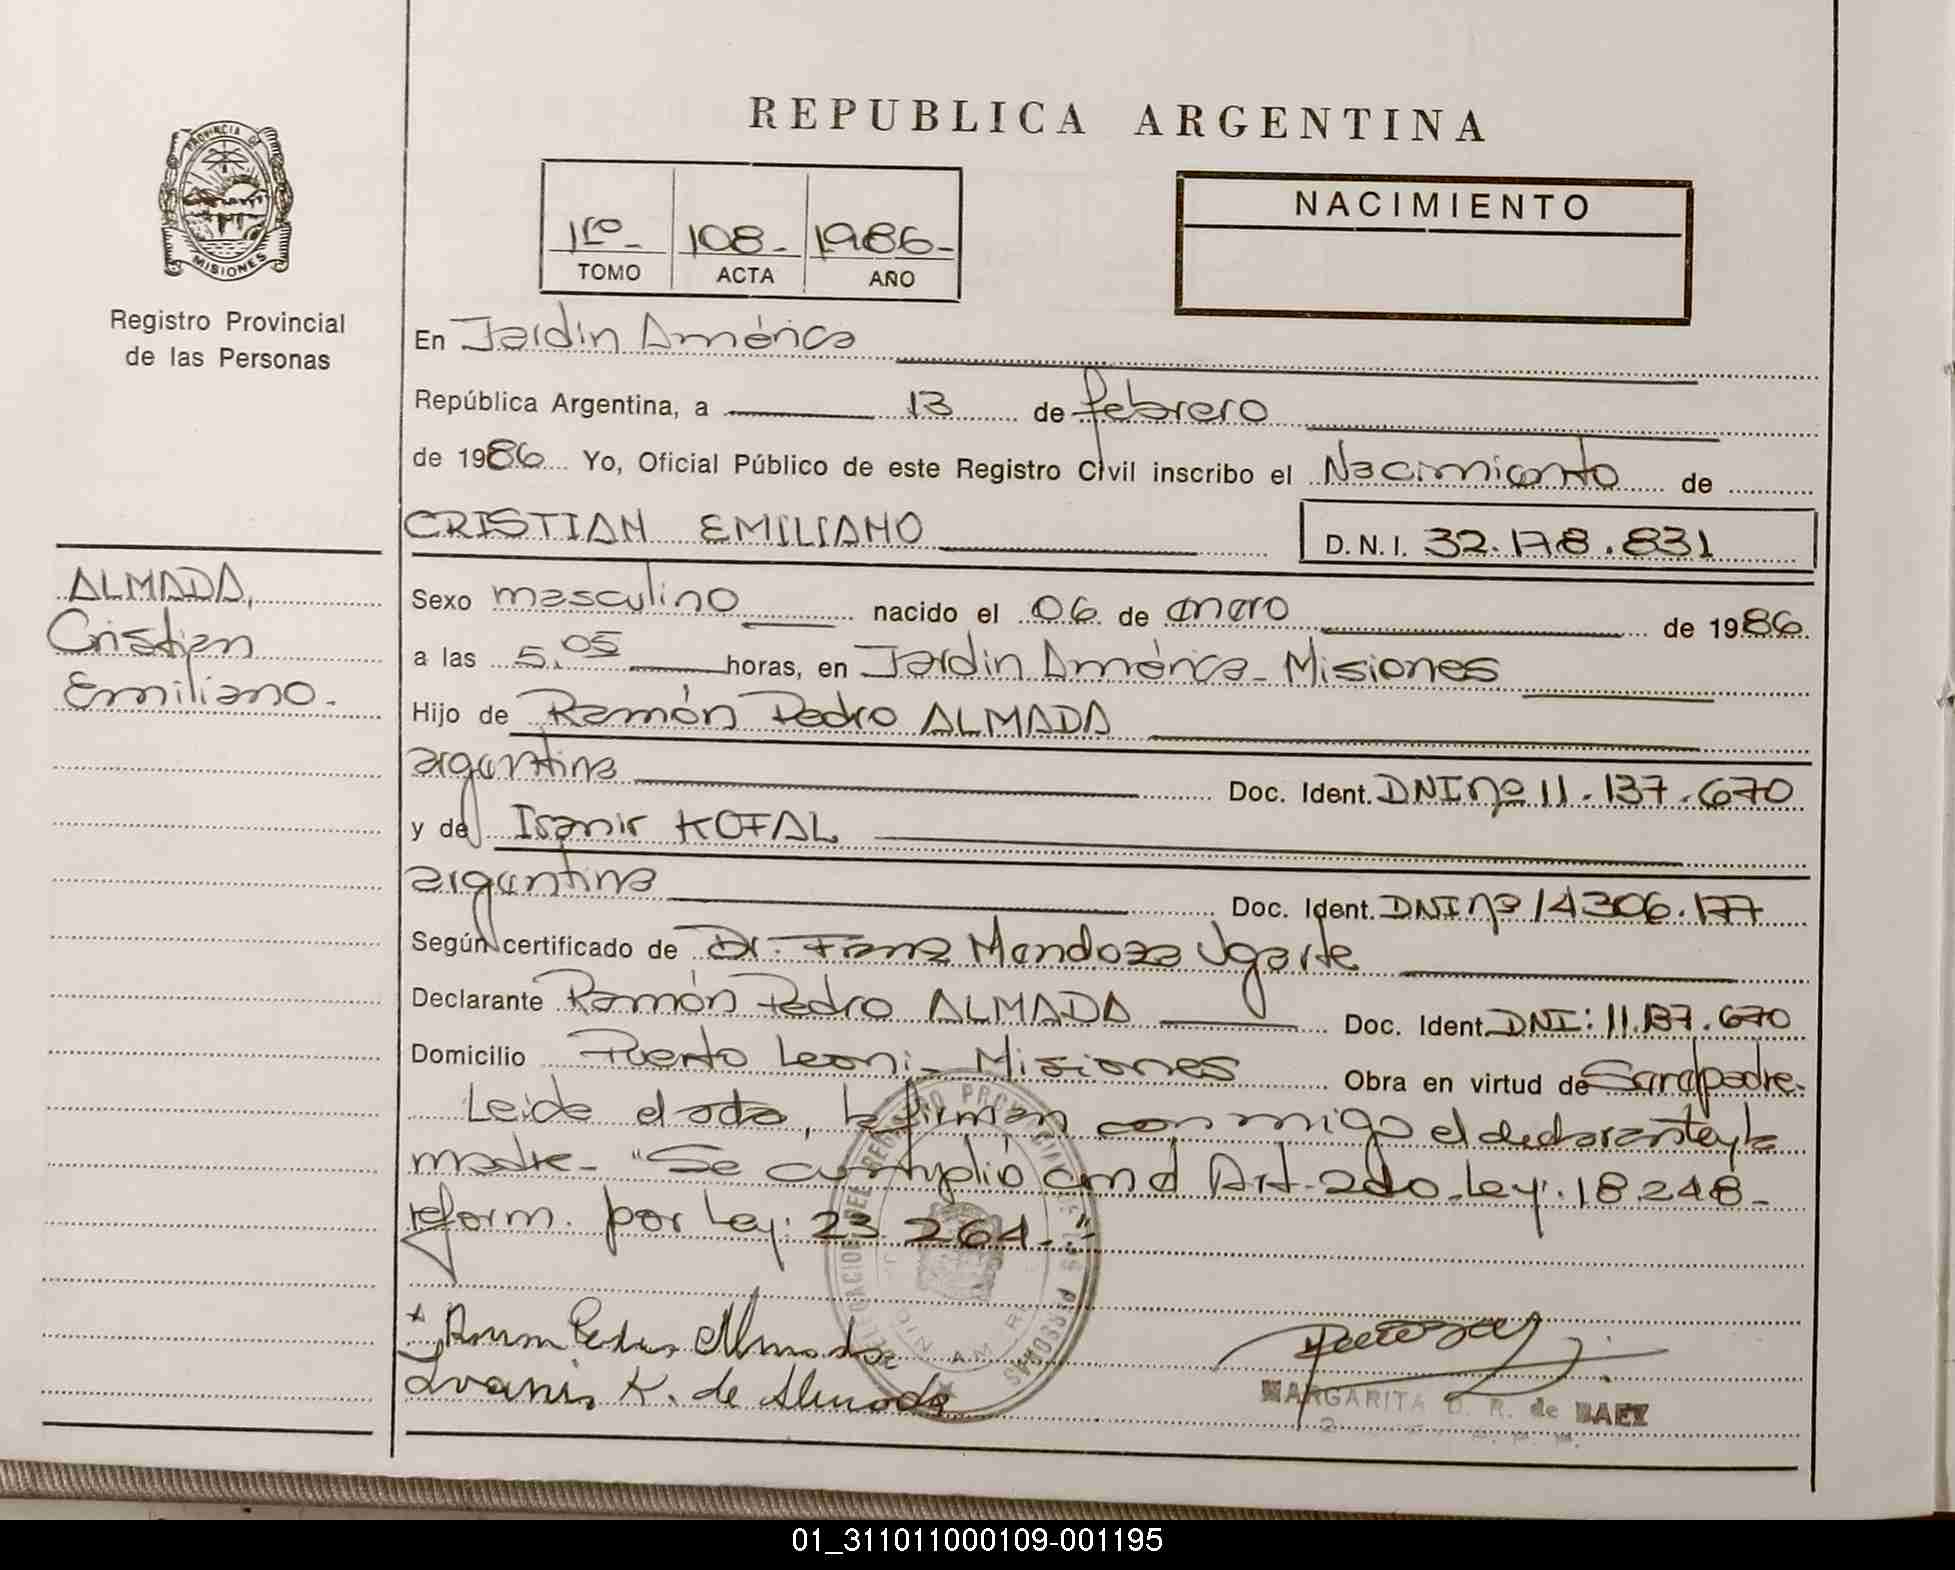 REPUBLICA ARGENTINA
PROVINCIA DE
MISIONES
Registro Provincial
de las Personas
1ro- 108- 1986-
TOMO ACTA AÑO
NACIMIENTO
En Jardin América
República Argentina, a 13 de febrero
de 1986 Yo, Oficial Público de este Registro Civil inscribo el Nacimiento de
CRISTIAN EMILIANO D.N.I. 32.178.831
ALMADA,
Cristian
Emiliano.-
Sexo masculino nacido el 06 de enero de 1986.
a las 5.05 horas, en Jardin América- Misiones
Hijo de Ramón Pedro ALMADA
argentina Doc. Ident. DNI nº 11.137.670
y de KOFAL
argentina Doc. Ident. DNI nº 14306.177
Según certificado de Dr. Mendoza Ugarte
Declarante Ramón Pedro ALMADA Doc. Ident. DNI: 11.137.670
Domicilio Puerto Leoni- Misiones Obra en virtud de padre.
Leida el acta, la firman conmigo el declarante y la
madre- "Se cumplió con el Art. 2do. Ley: 18.248-
reform. por Ley: 23.264.-"
Pedro Almada
K. de Almada
MARGARITA D. R. de BAEZ
01_311011000109-001195